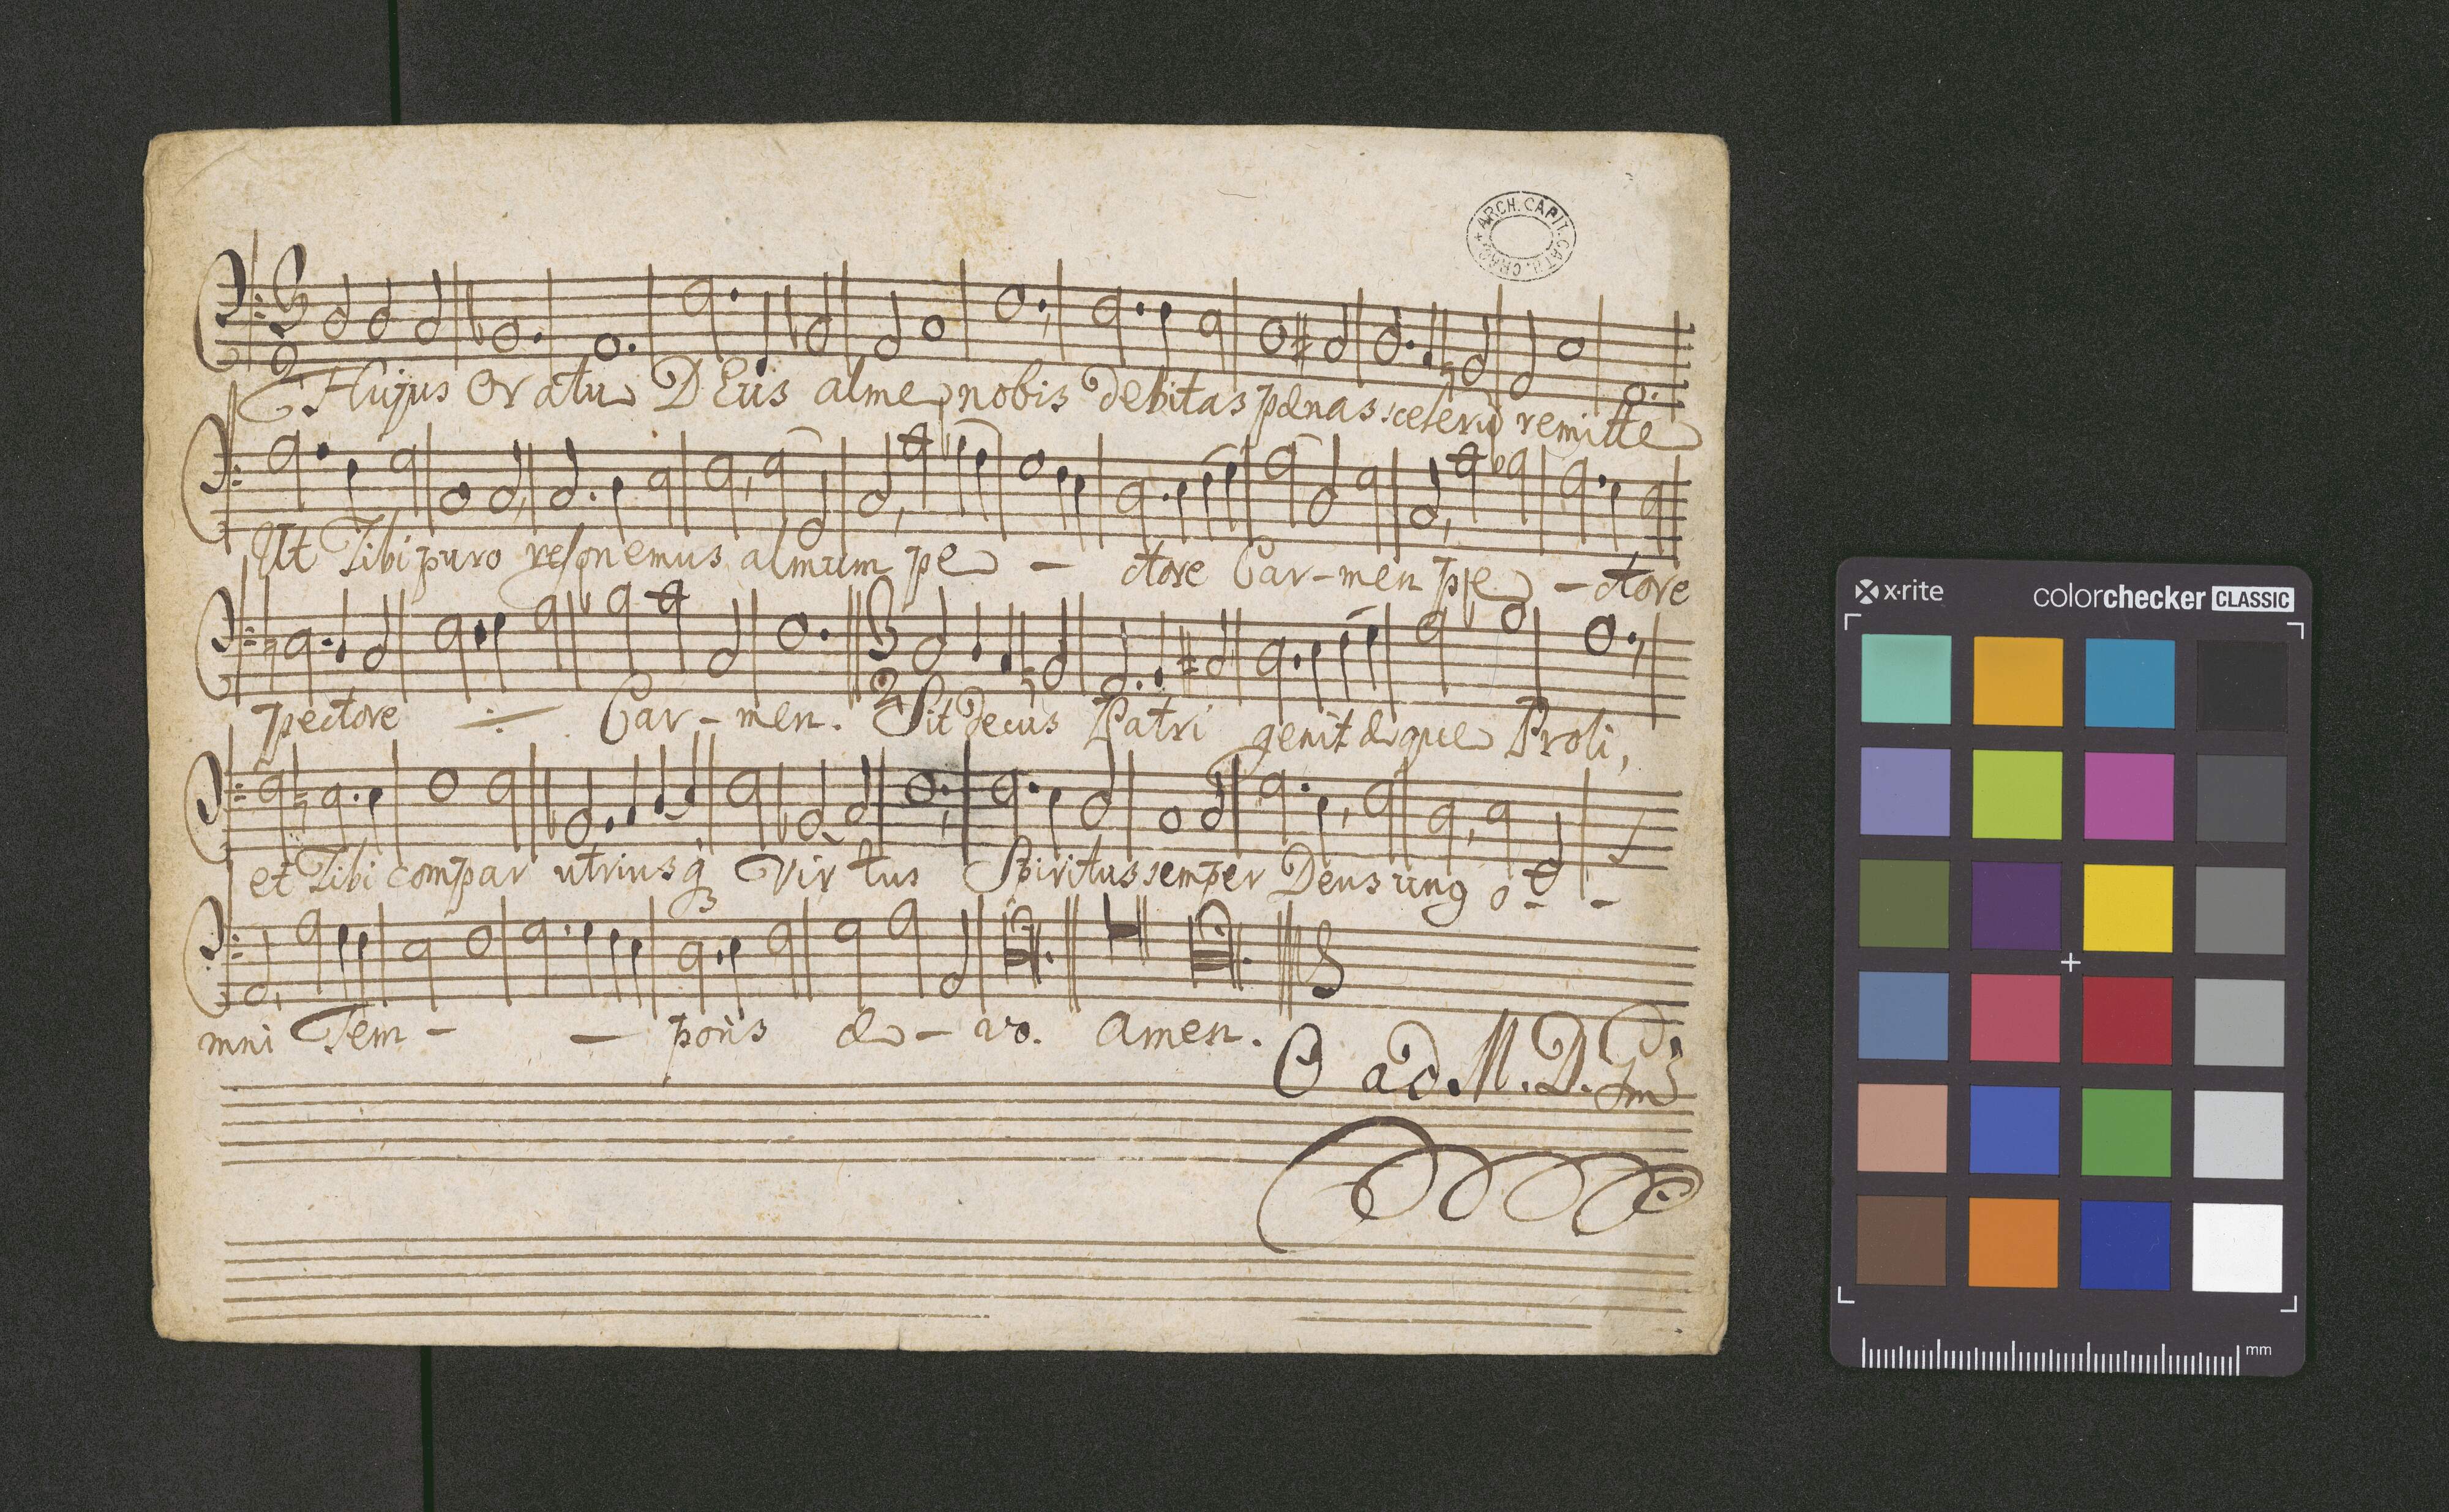 ARCH. CAPIT. CATH. CRAC.
Hujus Oratu DEus alme nobis debitas pænas scelerū remitte
Ut Tibi puro resonemus almum pe - ctore Car-men pe - ctore
pectore ÷ Car-men. Sit decus Patri genitæque Proli,
et Tibi compar utriusq3 Virtus Spiritus semper Deus uno o- -
mni Tem - - poris æ - vo. Amen.
O ad. M. D. G.
x·rite colorchecker CLASSIC
mm